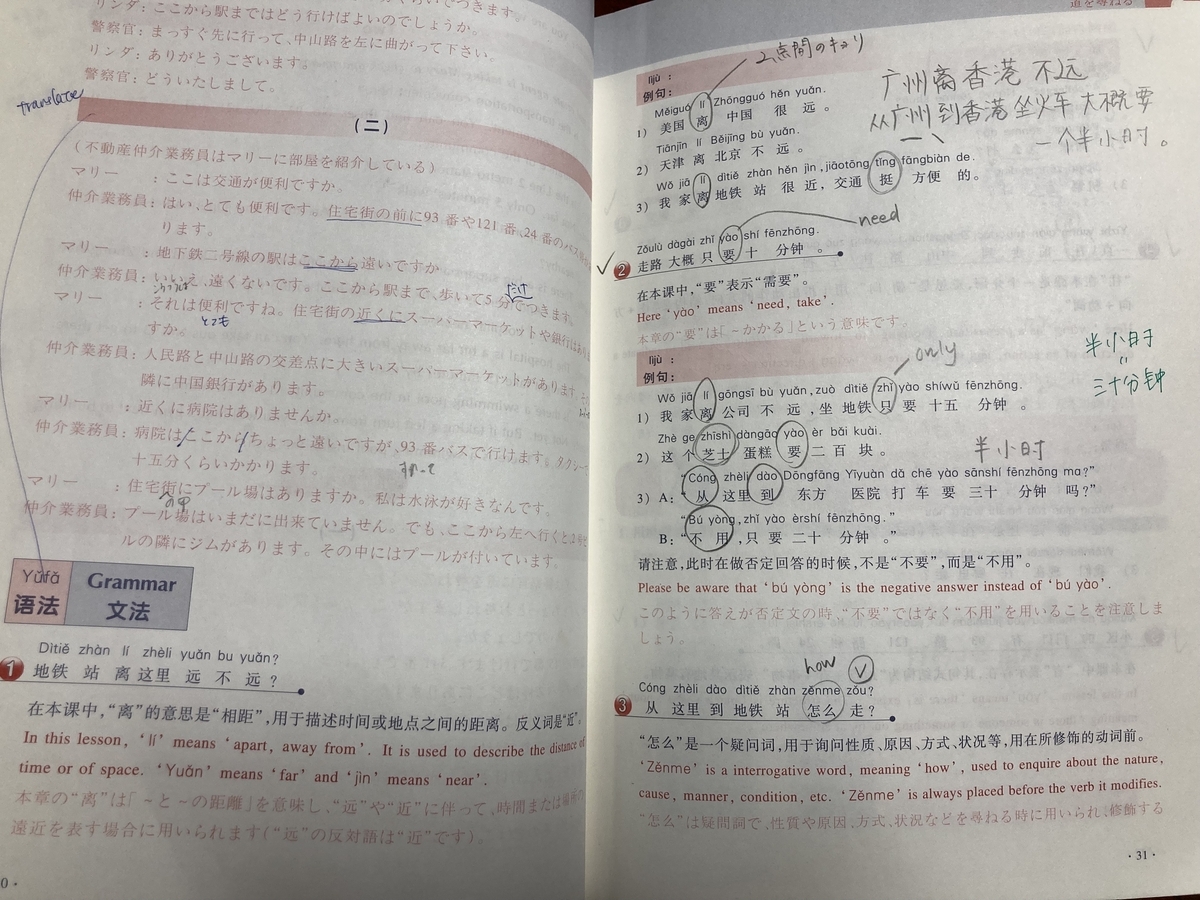 リンダ：ここから駅まではどう行けばよいのでしょうか。
警察官：まっすぐ先に行って、中山路を左に曲がって下さい。
リンダ：ありがとうございます。
警察官：どういたしまして。
translate
（二）
（不動産仲介業務員はマリーに部屋を紹介している）
マリー　　：ここは交通が便利ですか。
仲介業務員：はい、とても便利です。住宅街の前に93番や121番、24番のバス
ります。
マリー　　：地下鉄二号線の駅はここから遠いですか
仲介業務員：いいえ、遠くないです。ここから駅まで、歩いて5分でつきます。
だけ
マリー　　：それは便利ですね。住宅街の近くにスーパーマーケットや銀行はあり
とても
すか。
仲介業務員：人民路と中山路の交差点に大きいスーパーマーケットがあります。
隣に中国銀行があります。
マリー　　：近くに病院はありませんか
仲介業務員：病院はここからちょっと遠いですが、93番バスで行けます。タクシー
十五分くらいかかります。
マリー　　：住宅街にプール場はありますか。私は水泳が好きなんです。
の中
仲介業務員：プール場はいまだに出来ていません。でも、ここから左へ行くと
ルの隣にジムがあります。その中にはプールが付いています。
Yǔfǎ
语法
Grammar
文法
Dìtiě zhàn lí zhèli yuǎn bu yuǎn?
1 地铁 站 离 这里 远 不 远？
在本课中，“离”的意思是“相距”，用于描述时间或地点之间的距离。反义词是“近”。
In this lesson, ‘lí’ means ‘apart, away from’. It is used to describe the distance of
time or of space. ‘Yuǎn’ means ‘far’ and ‘jìn’ means ‘near’.
本章の“离”は「～と～の距離」を意味し、“远”や“近”に伴って、時間または場所の
遠近を表す場合に用いられます（“远”の反対語は“近”です）。
道を尋ねる
2点間のキョリ
lìjù：
例句：
广州离香港 不远
从广州到香港坐火车 大概要
一个半小时。
Měiguó lí Zhōngguó hěn yuǎn.
1) 美国 离 中国 很 远。
Tiānjīn lí Běijīng bù yuǎn.
2) 天津 离 北京 不 远。
Wǒ jiā lí dìtiě zhàn hěn jìn, jiāotōng tǐng fāngbiàn de.
3) 我 家 离 地铁 站 很 近，交通 挺 方便 的。
need
Zǒulù dàgài zhǐ yào shí fēnzhōng.
2 走路 大概 只 要 十 分钟。
在本课中，“要”表示“需要”。
Here ‘yào’ means ‘need, take’.
本章の“要”は「～かかる」という意味です。
lìjù：
例句：
only
半小时
三十分钟
Wǒ jiā lí gōngsī bù yuǎn, zuò dìtiě zhǐ yào shíwǔ fēnzhōng.
1) 我 家 离 公司 不 远，坐 地铁 只 要 十五 分钟。
Zhè ge zhīshì dàngāo yào èr bǎi kuài.
2) 这 个 芝士 蛋糕 要 二 百 块。
半小时
“Cóng zhèli dào Dōngfāng Yīyuàn dǎ chē yào sānshí fēnzhōng ma?”
3) A：“从 这里 到 东方 医院 打 车 要 三十 分钟 吗？”
“Bú yòng, zhǐ yào èrshí fēnzhōng.”
B：“不 用，只 要 二十 分钟。”
请注意，此时在做否定回答的时候，不是“不要”，而是“不用”。
Please be aware that ‘bú yòng’ is the negative answer instead of ‘bú yào’.
このように答えが否定文の時、“不要”ではなく“不用”を用いることを注意しま
しょう。
how V
Cóng zhèli dào dìtiě zhàn zěnme zǒu?
3 从 这里 到 地铁 站 怎么 走？
“怎么”是一个疑问词，用于询问性质、原因、方式、状况等，用在所修饰的动词前。
‘Zěnme’ is a interrogative word, meaning ‘how’, used to enquire about the nature,
cause, manner, condition, etc. ‘Zěnme’ is always placed before the verb it modifies.
“怎么”は疑問詞で、性質や原因、方式、状況などを尋ねる時に用いられ、修飾する
· 31 ·